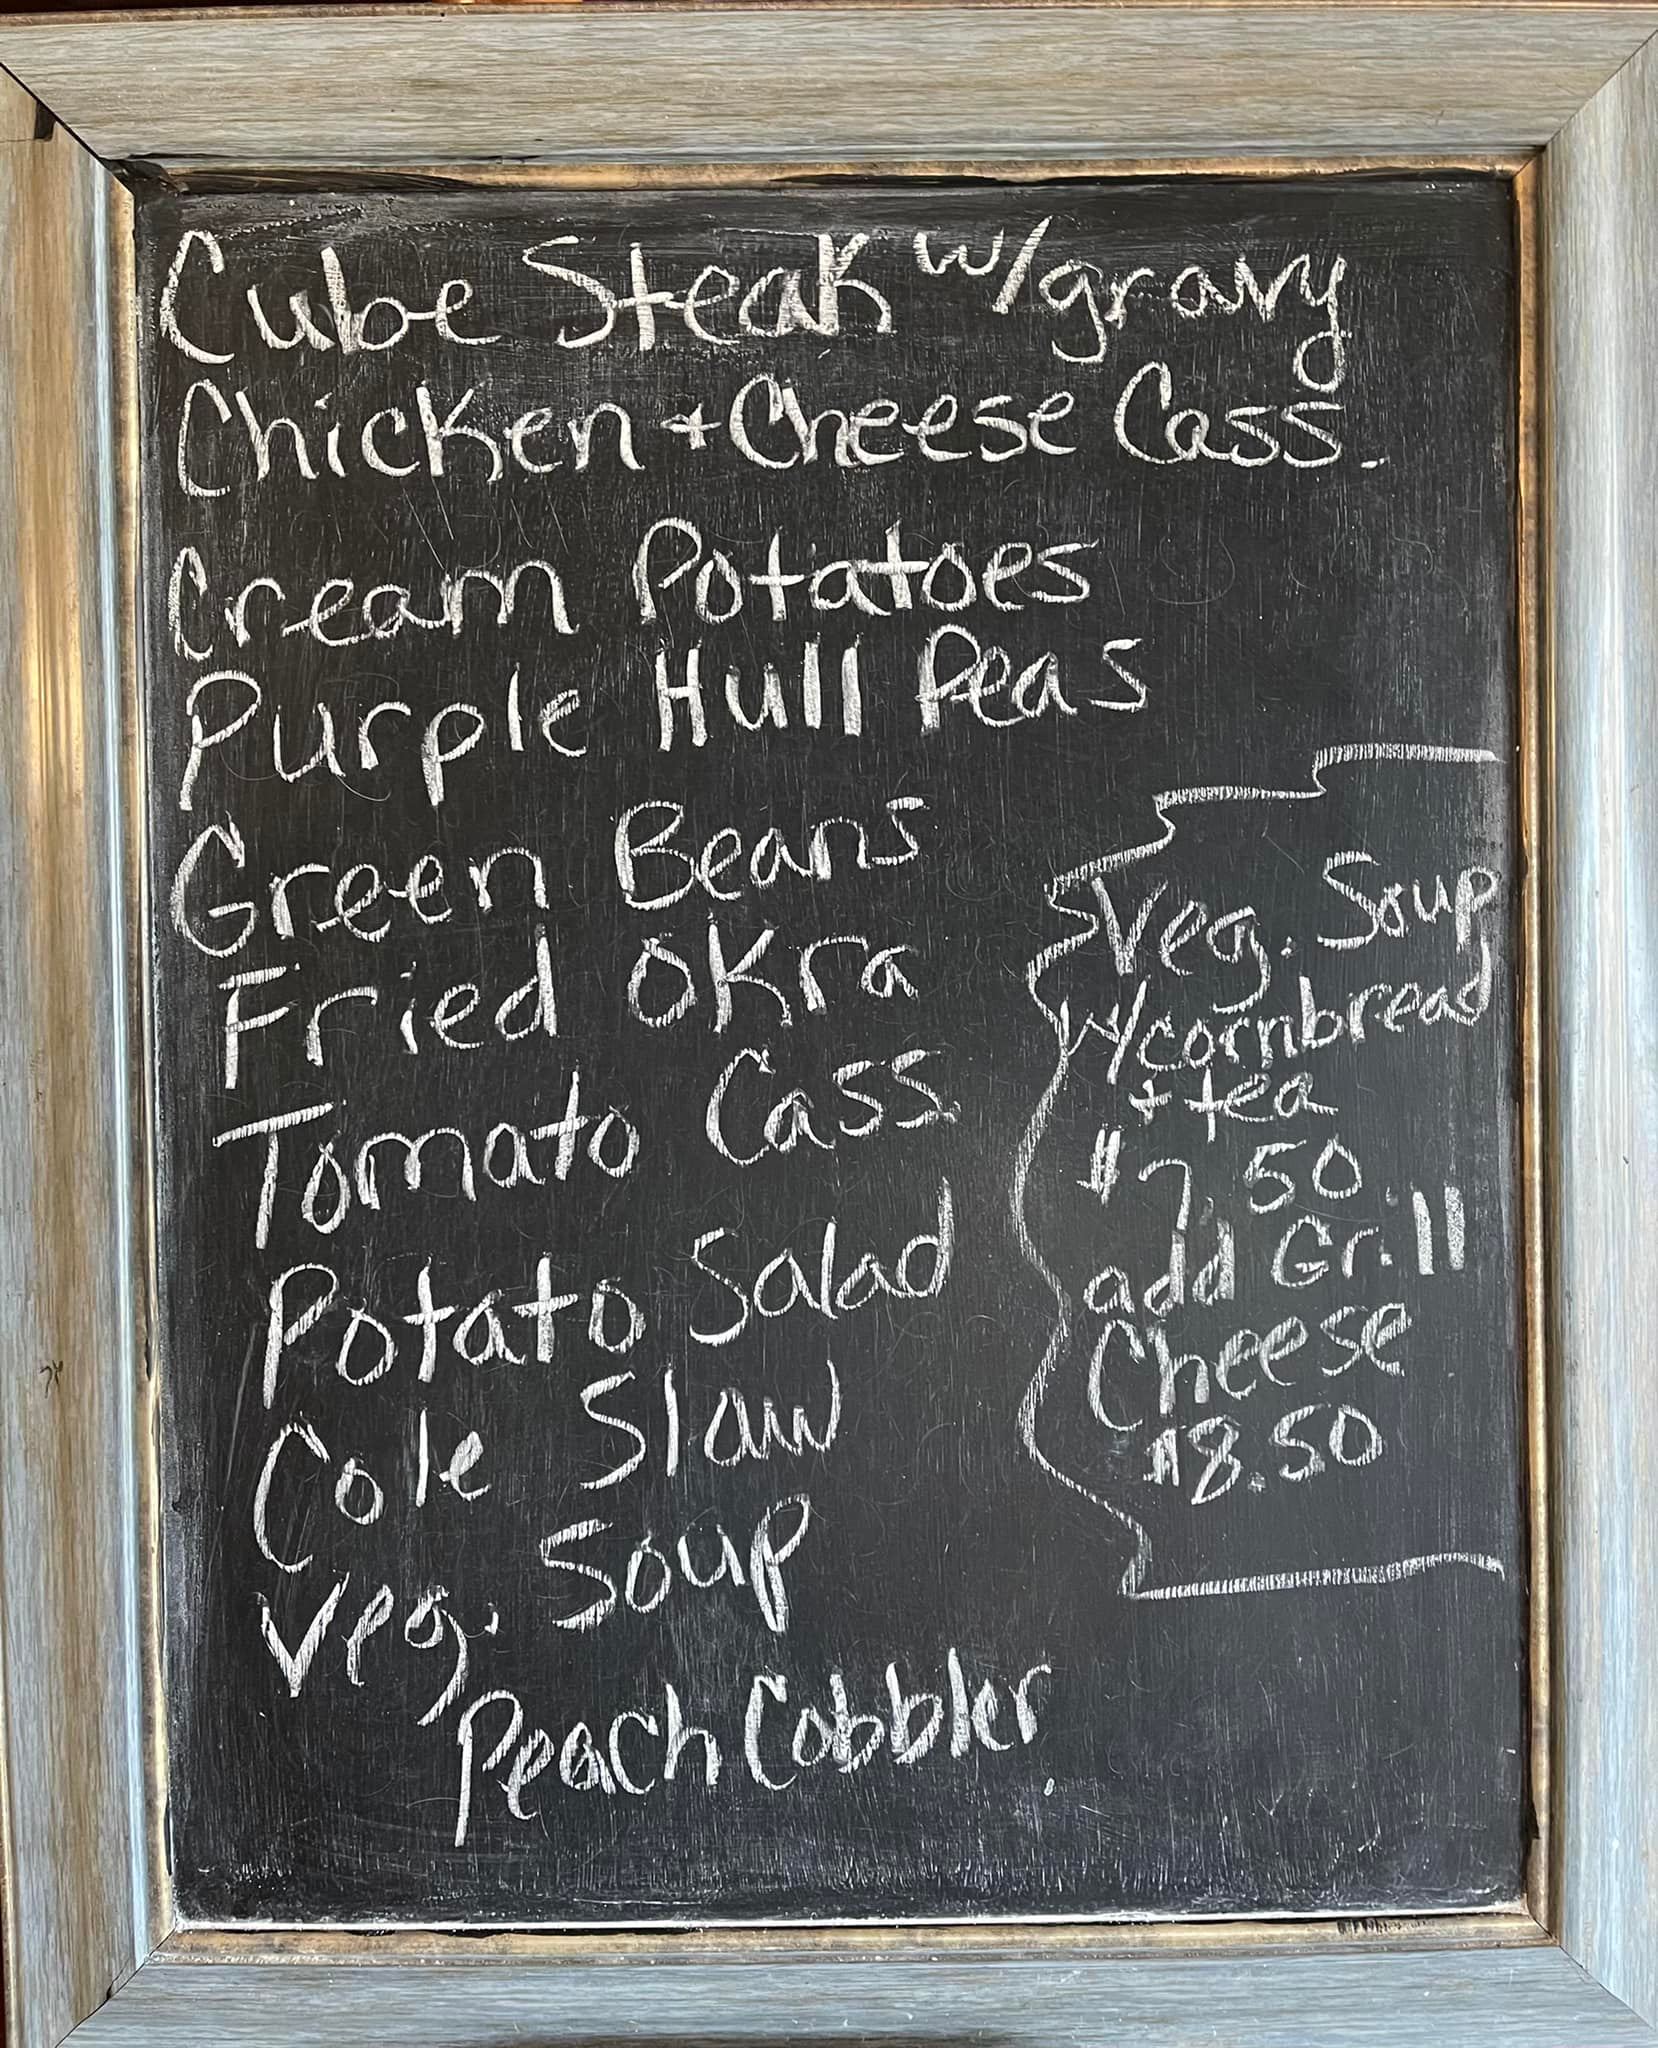 Cube Steak w/gravy
Chicken + Cheese Cass.
Cream Potatoes
Purple Hull Peas
Green Beans
Fried Okra
Tomato Cass.
Potato Salad
Cole Slaw
Veg. Soup
Peach Cobbler
Veg. Soup
w/cornbread
+ tea
$7.50
add Grill
Cheese
$8.50